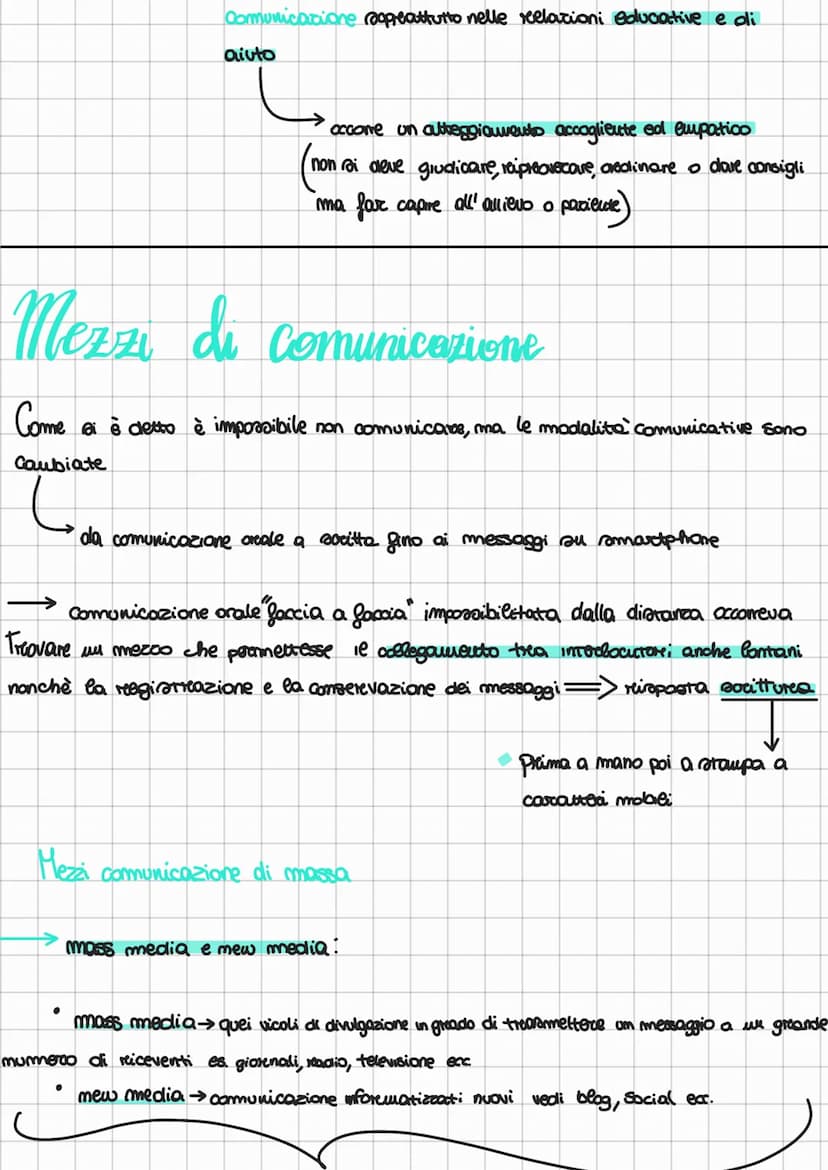 Comunicazione soprattutto nelle relazioni educative e di
aiuto
occorre un atteggiamento accogliente ed empatico
(non si deve giudicare, rimproverare, ordinare o dare consigli
ma far capire all'allievo o paziente)
Mezzi di comunicazione
Come si è detto è impossibile non comunicare, ma le modalità comunicative sono
cambiate
da comunicazione orale a scritta fino ai messaggi su smartphone
→ comunicazione orale "faccia a faccia" impossibilitata dalla distanza occorreva
Trovare un mezzo che permettesse il collegamento tra interlocutori anche lontani
nonchè la registrazione e la conservazione dei messaggi ⇒ risposta scrittura
Prima a mano poi a stampa a
caratteri mobili
Mezzi comunicazione di massa
→ mass media e new media:
• mass media → quei vicoli di divulgazione in grado di trasmettere un messaggio a un grande
numero di riceventi es. giornali, radio, televisione ecc
• new media → comunicazione informatizzati nuovi vedi blog, social ecc.